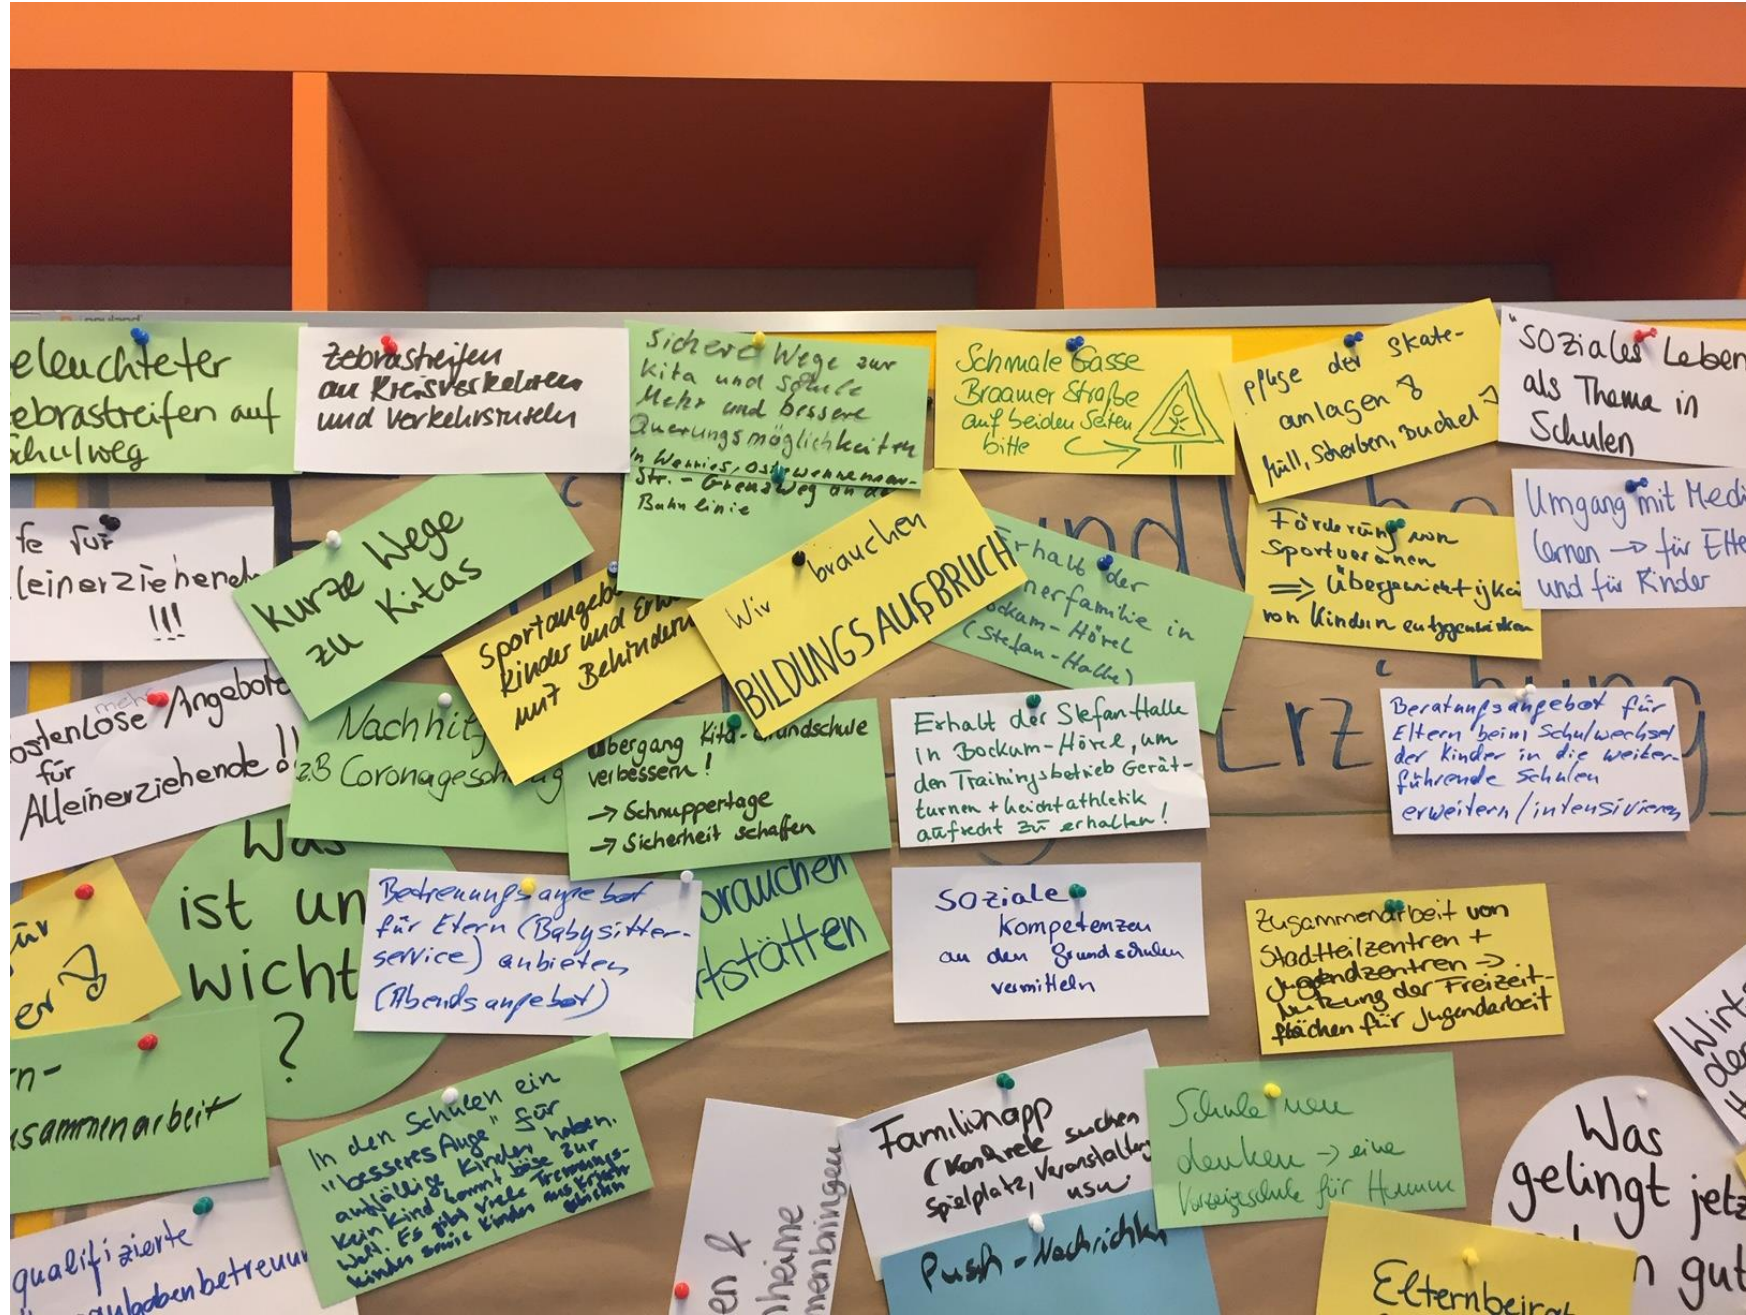 eleuchteter
ebrastreifen auf
chulweg
Zebrastreifen
an Kreisverkehren
und Verkehrsinseln
Sichere Wege zur
Kita und Schule
Mehr und bessere
Querungsmöglichkeiten
In Werries, Ostwennemar-
Str. - Grenzweg an der
Bahnlinie
Schmale Gasse
Braamer Straße
auf beiden Seiten
bitte
Pflege der Skate-
anlagen
Müll, Scherben,
"Soziales Leben
als Thema in
Schulen
fe für
leinerziehend
!!!
kurze Wege
zu Kitas
Sportangebo
Kinder und Erw
mit Behinderu
Wir brauchen
BILDUNGSAUFBRUCH
Erhalt der
nerfamilie in
ockum-Hövel
(Stefan-Halle)
Förderung von
Sportvereinen
⇒ Übergewichtigkei
von Kindern entgegenwirken
Umgang mit Medi
lernen → für Elte
und für Kinder
ostenlose mehr Angebote
für
Alleinerziehende !!
Nachhil
z.B Coronagesch
g
Übergang Kita-Grundschule
verbessern!
→ Schnuppertage
→ Sicherheit schaffen
Erhalt der Stefan-Halle
in Bockum-Hövel, um
den Trainingsbetrieb Gerät-
turnen + Leichtathletik
aufrecht zu erhalten!
Erziehung
Beratungsangebot für
Eltern beim Schulwechsel
der Kinder in die weiter-
führende Schulen
erweitern/intensivieren
Was
ist un
wicht
?
ür
er
Betreuungsangebot
für Etern (Babysitter-
service) anbieten
(Abendsangebot)
brauchen
tstätten
Soziale
Kompetenzen
an den Grundschulen
vermitteln
Zusammenarbeit von
Stadtteilzentren +
Jugendzentren →
Nutzung der Freizeit-
flächen für Jugendarbeit
n-
sammenarbeit
In den Schulen ein
"besseres Auge" für
auffällige Kinder haben.
Kein Kind kommt böse zur
Welt. Es gibt viele Trennungs-
kinder sowie Kinder aus Krisen-
gebieten
qualifizierte
aufgabenbetreuun
en &
nheime
menbingen
Familienapp
(Konkrete suchen
Spielplatz, Veranstaltung
usw
Push-Nachrichten
Schule neu
denken → eine
Vorzeigeschule für Hamm
Wirt
der
Was
gelingt jetz
gut
Elternbeirat